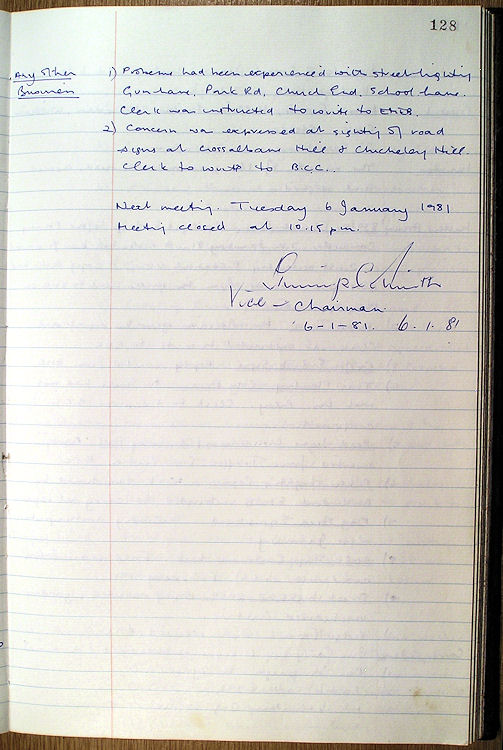 128
Any other 1) Problems had been experienced with street lighting
Business Gun Lane, Park Rd, Church End, School Lane.
Clerk was instructed to write to EMEB.
2) Concern was expressed at sighting of road
signs at Crossalbans Hill & Chicheley Hill.
Clerk to write to B.C.C..
Next meeting. Tuesday 6 January 1981
Meeting closed at 10.15 pm.
Smith
Vice - Chairman
6-1-81. 6.1.81